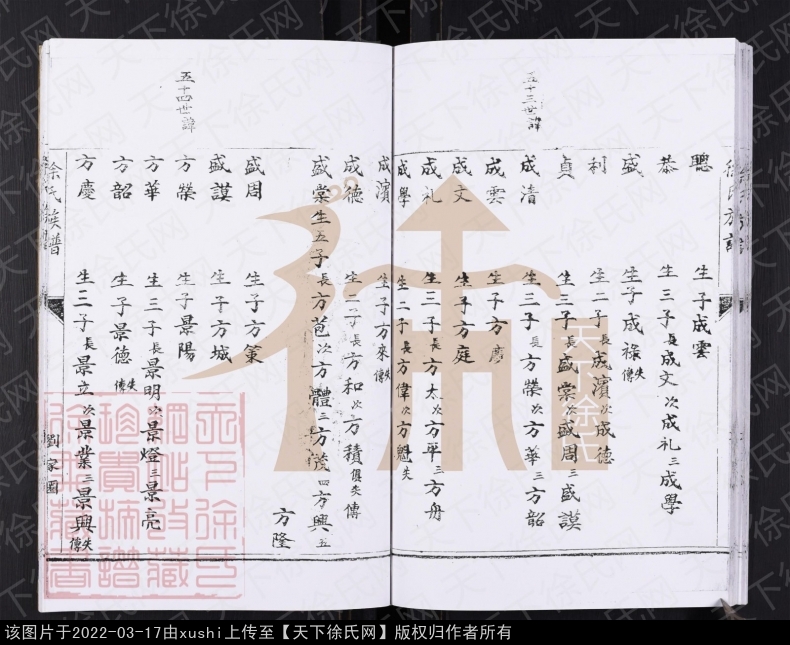 徐氏族譜
五十三世諱
聰 生子成雲
恭 生三子長成文次成礼三成學
盛 生子成祿失傳
利 生二子長成濱次成德
貞 生三子長盛棠次盛周三盛謨
成清 生三子長方榮次方華三方韶
成雲 生子方彥
成文 生子方庭
成礼 生三子長方太次方平三方舟
成學 生二子長方偉次方魁失
成濱 生子方來失傳
成德 生二子長方和次方積俱失傳
盛棠 生五子長方苞次方體三方茂四方興五
方隆
五十四世諱
盛周 生子方策
盛謨 生子方城
方榮 生子景陽
方華 生三子長景明次景燈三景亮
方韶 生子景德失傳
方慶 生三子長景立次景業三景興失傳
徐氏族譜
劉家圖
天下徐氏
天下徐氏网
该图片于2022-03-17由xushi上传至【天下徐氏网】版权归作者所有